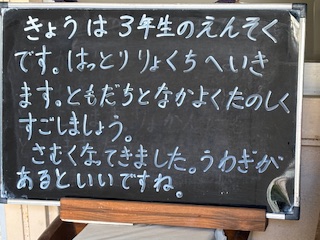 きょうは3年生のえんそく
です。はっとりりょくちへいき
ます。ともだちとなかよくたのしく
すごしましょう。
さむくなってきました。うわぎが
あるといいですね。